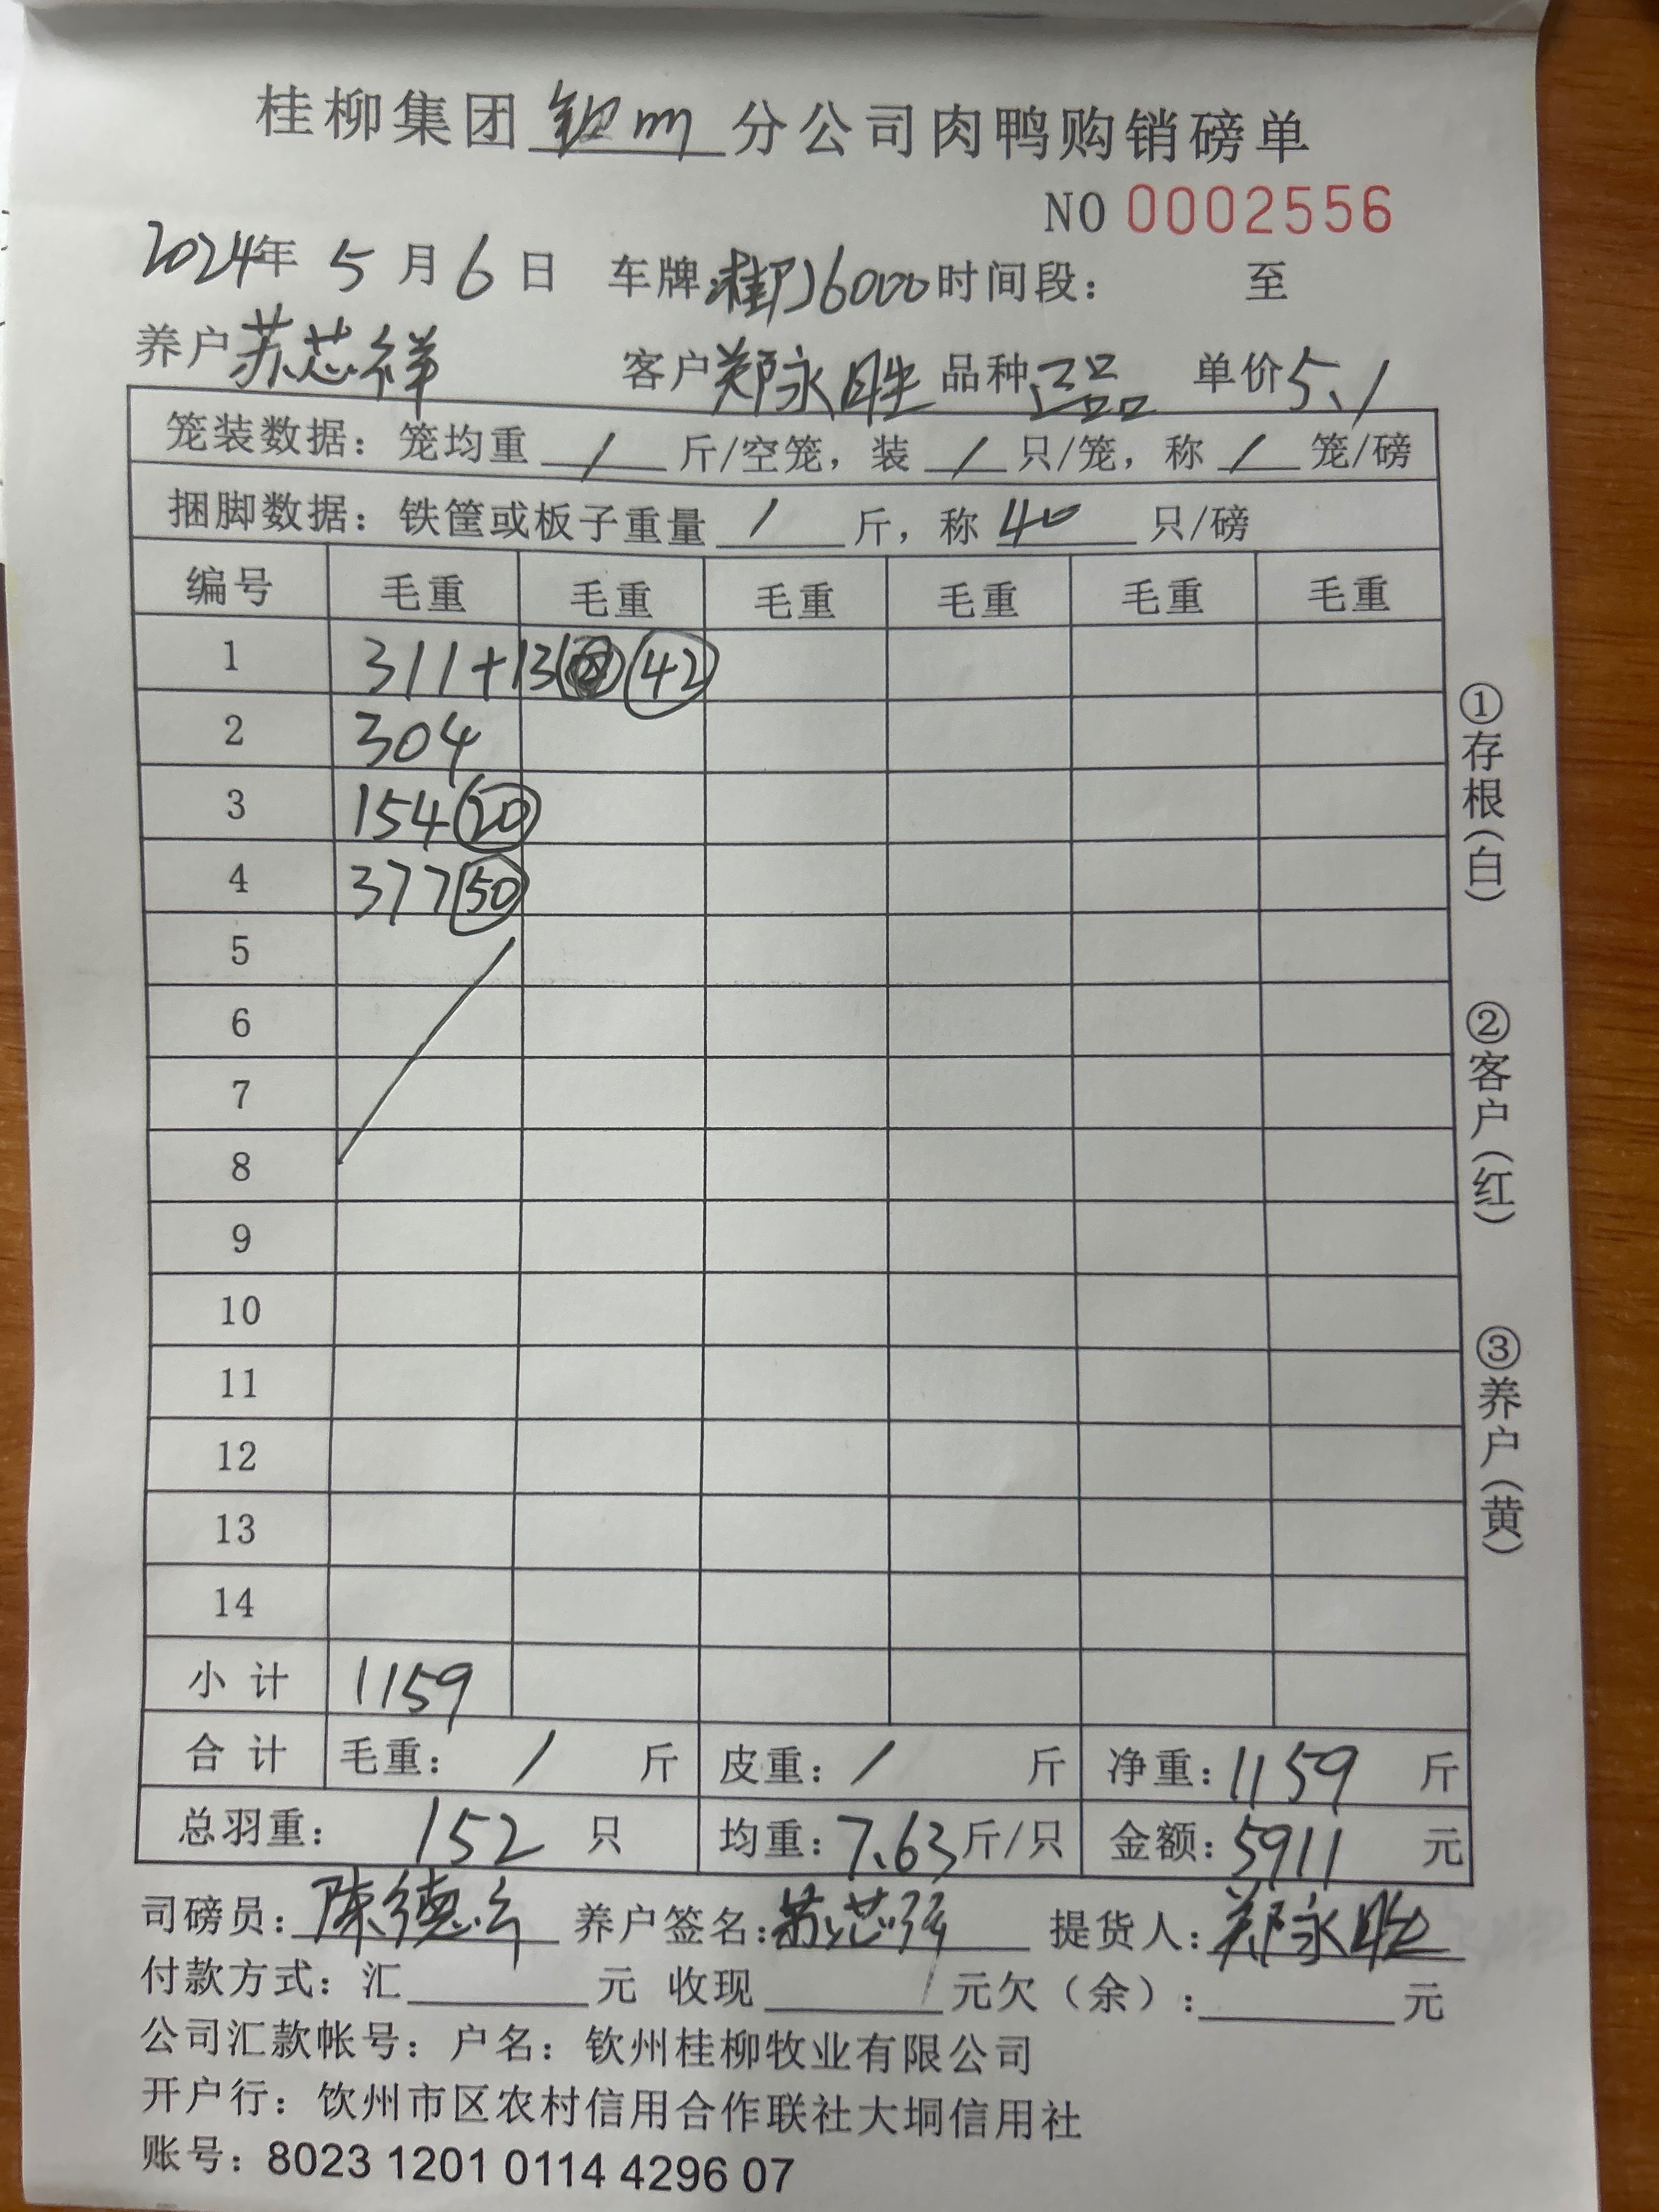 桂柳集团 钦州 分公司肉鸭购销磅单
NO 0002556
2024年 5 月 6 日 车牌:桂J16000 时间段: 至
养户 苏芯祥 客户 郑永胜 品种 正品 单价 5.1
笼装数据: 笼均重 / 斤/空笼, 装 / 只/笼, 称 / 笼/磅
捆脚数据: 铁筐或板子重量 / 斤, 称 40 只/磅
编号 毛重 毛重 毛重 毛重 毛重 毛重
1 311+13 42
2 304
3 154 20
4 377 50
5
6
7
8
9
10
11
12
13
14
小计 1159
合计 毛重: / 斤 皮重: / 斤 净重: 1159 斤
总羽重: 152 只 均重: 7.63 斤/只 金额: 5911 元
司磅员: 陈德 养户签名: 苏芯 提货人: 郑永胜
付款方式: 汇 元 收现 / 元欠(余): 元
公司汇款帐号: 户名: 钦州桂柳牧业有限公司
开户行: 钦州市区农村信用合作联社大垌信用社
账号: 8023 1201 0114 4296 07
①存根(白)
②客户(红)
③养户(黄)